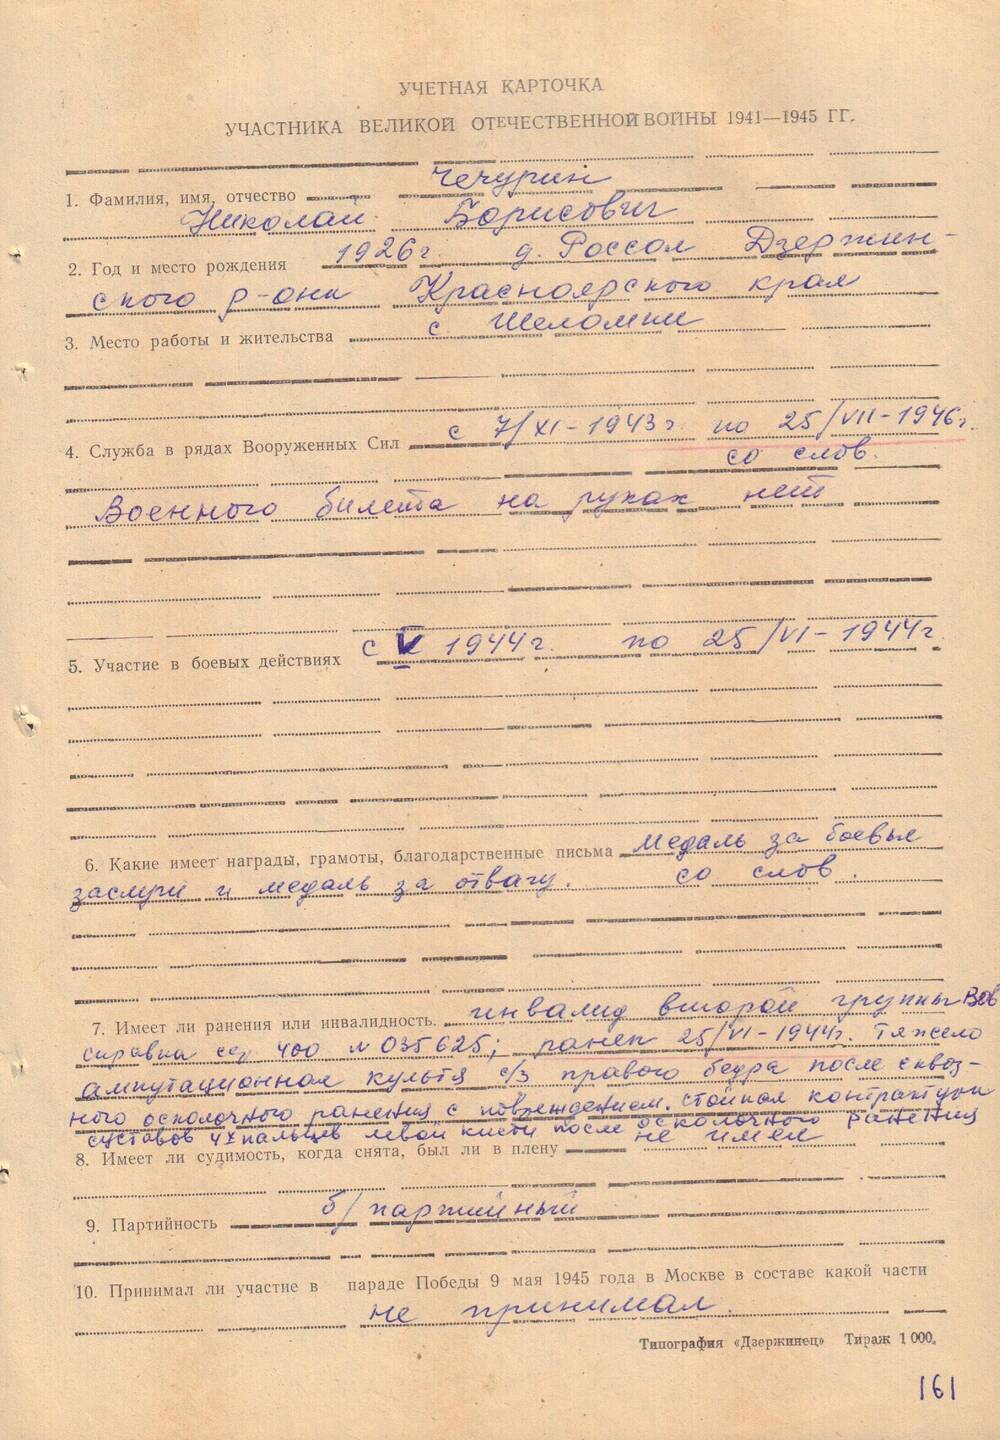 УЧЕТНАЯ КАРТОЧКА
УЧАСТНИКА ВЕЛИКОЙ ОТЕЧЕСТВЕННОЙ ВОЙНЫ 1941—1945 ГГ.
1. Фамилия, имя, отчество Чечурин
Николай Борисович
2. Год и место рождения 1926г. д. Россол Дзержин-
ского р-она Красноярского края
3. Место работы и жительства с Шеломки
4. Служба в рядах Вооруженных Сил с 7/XI-1943г по 25/VII-1946г.
со слов.
Военного билета на руках нет
5. Участие в боевых действиях с V 1944г. по 25/VI-1944г.
6. Какие имеет награды, грамоты, благодарственные письма медаль за боевые
заслуги и медаль за отвагу. со слов.
7. Имеет ли ранения или инвалидность. инвалид второй группы ВОВ
справка сер 400 №035625; ранен 25/VI-1944г. тяжело
ампутационная культя с/з правого бедра после сквоз-
ного осколочного ранения с повреждением. стойкая контрактура
суставов 4х пальцев левой кисти после осколочного ранения
8. Имеет ли судимость, когда снята, был ли в плену не имел
9. Партийность б/партийный
10. Принимал ли участие в параде Победы 9 мая 1945 года в Москве в составе какой части
не принимал.
Типография «Дзержинец» Тираж 1 000.
161